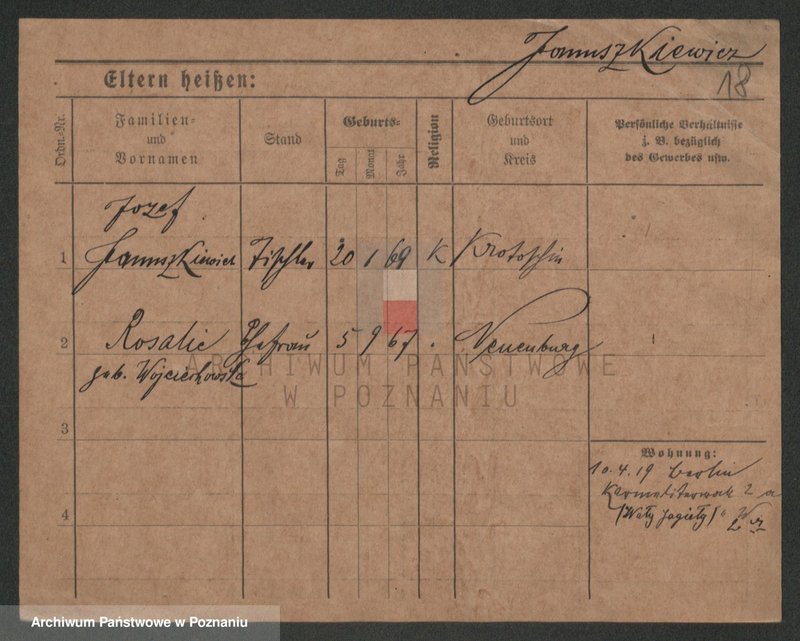 Januszkiewicz
18
Eltern heißen:
Ordn.-Nr.
Familien-
und
Vornamen
Stand
Geburts-
Tag
Monat
Jahr
Religion
Geburtsort
und
Kreis
Persönliche Verhältnisse
z. B. bezüglich
des Gewerbes usw.
Jozef
1 Januszkiewicz Tischler 20 1 69 K Krotoschin
2 Rosalie Ehefrau 5 9 67 . Neuenburg
geb. Wojciechowsk
ARCHIWUM PAŃSTWOWE
W POZNANIU
3
Wohnung:
10.4.19 Berlin
2 a
4
(Wały Jagiełły)
Archiwum Państwowe w Poznaniu